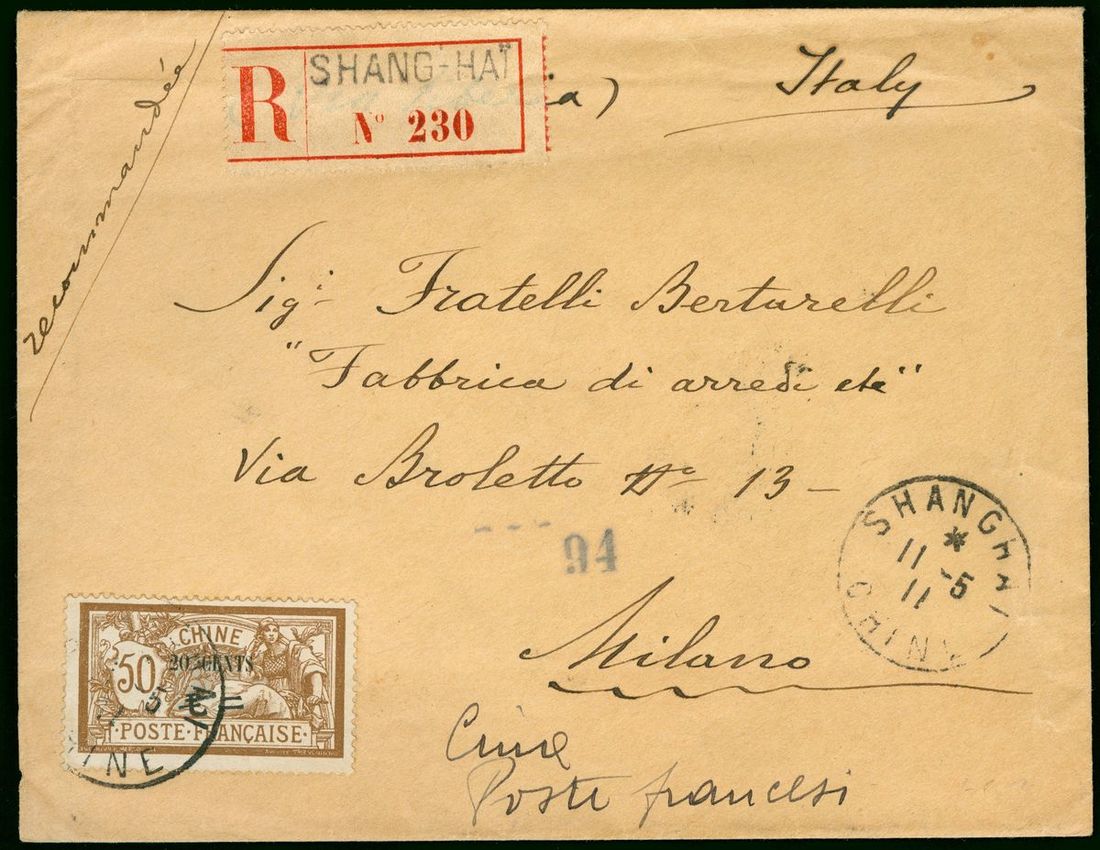 recommandée
R SHANG-HAÏ
Nº 230
ia) Italy
Sigi Fratelli Bertarelli
"Fabbrica di arredi etc"
Via Broletto Nº 13 -
94
SHANGHAI
11 -5
11
CHINA
Milano
CHINE
50 20 CENTS
5
POSTE FRANÇAISE
CHINE
Cina
Poste francesi